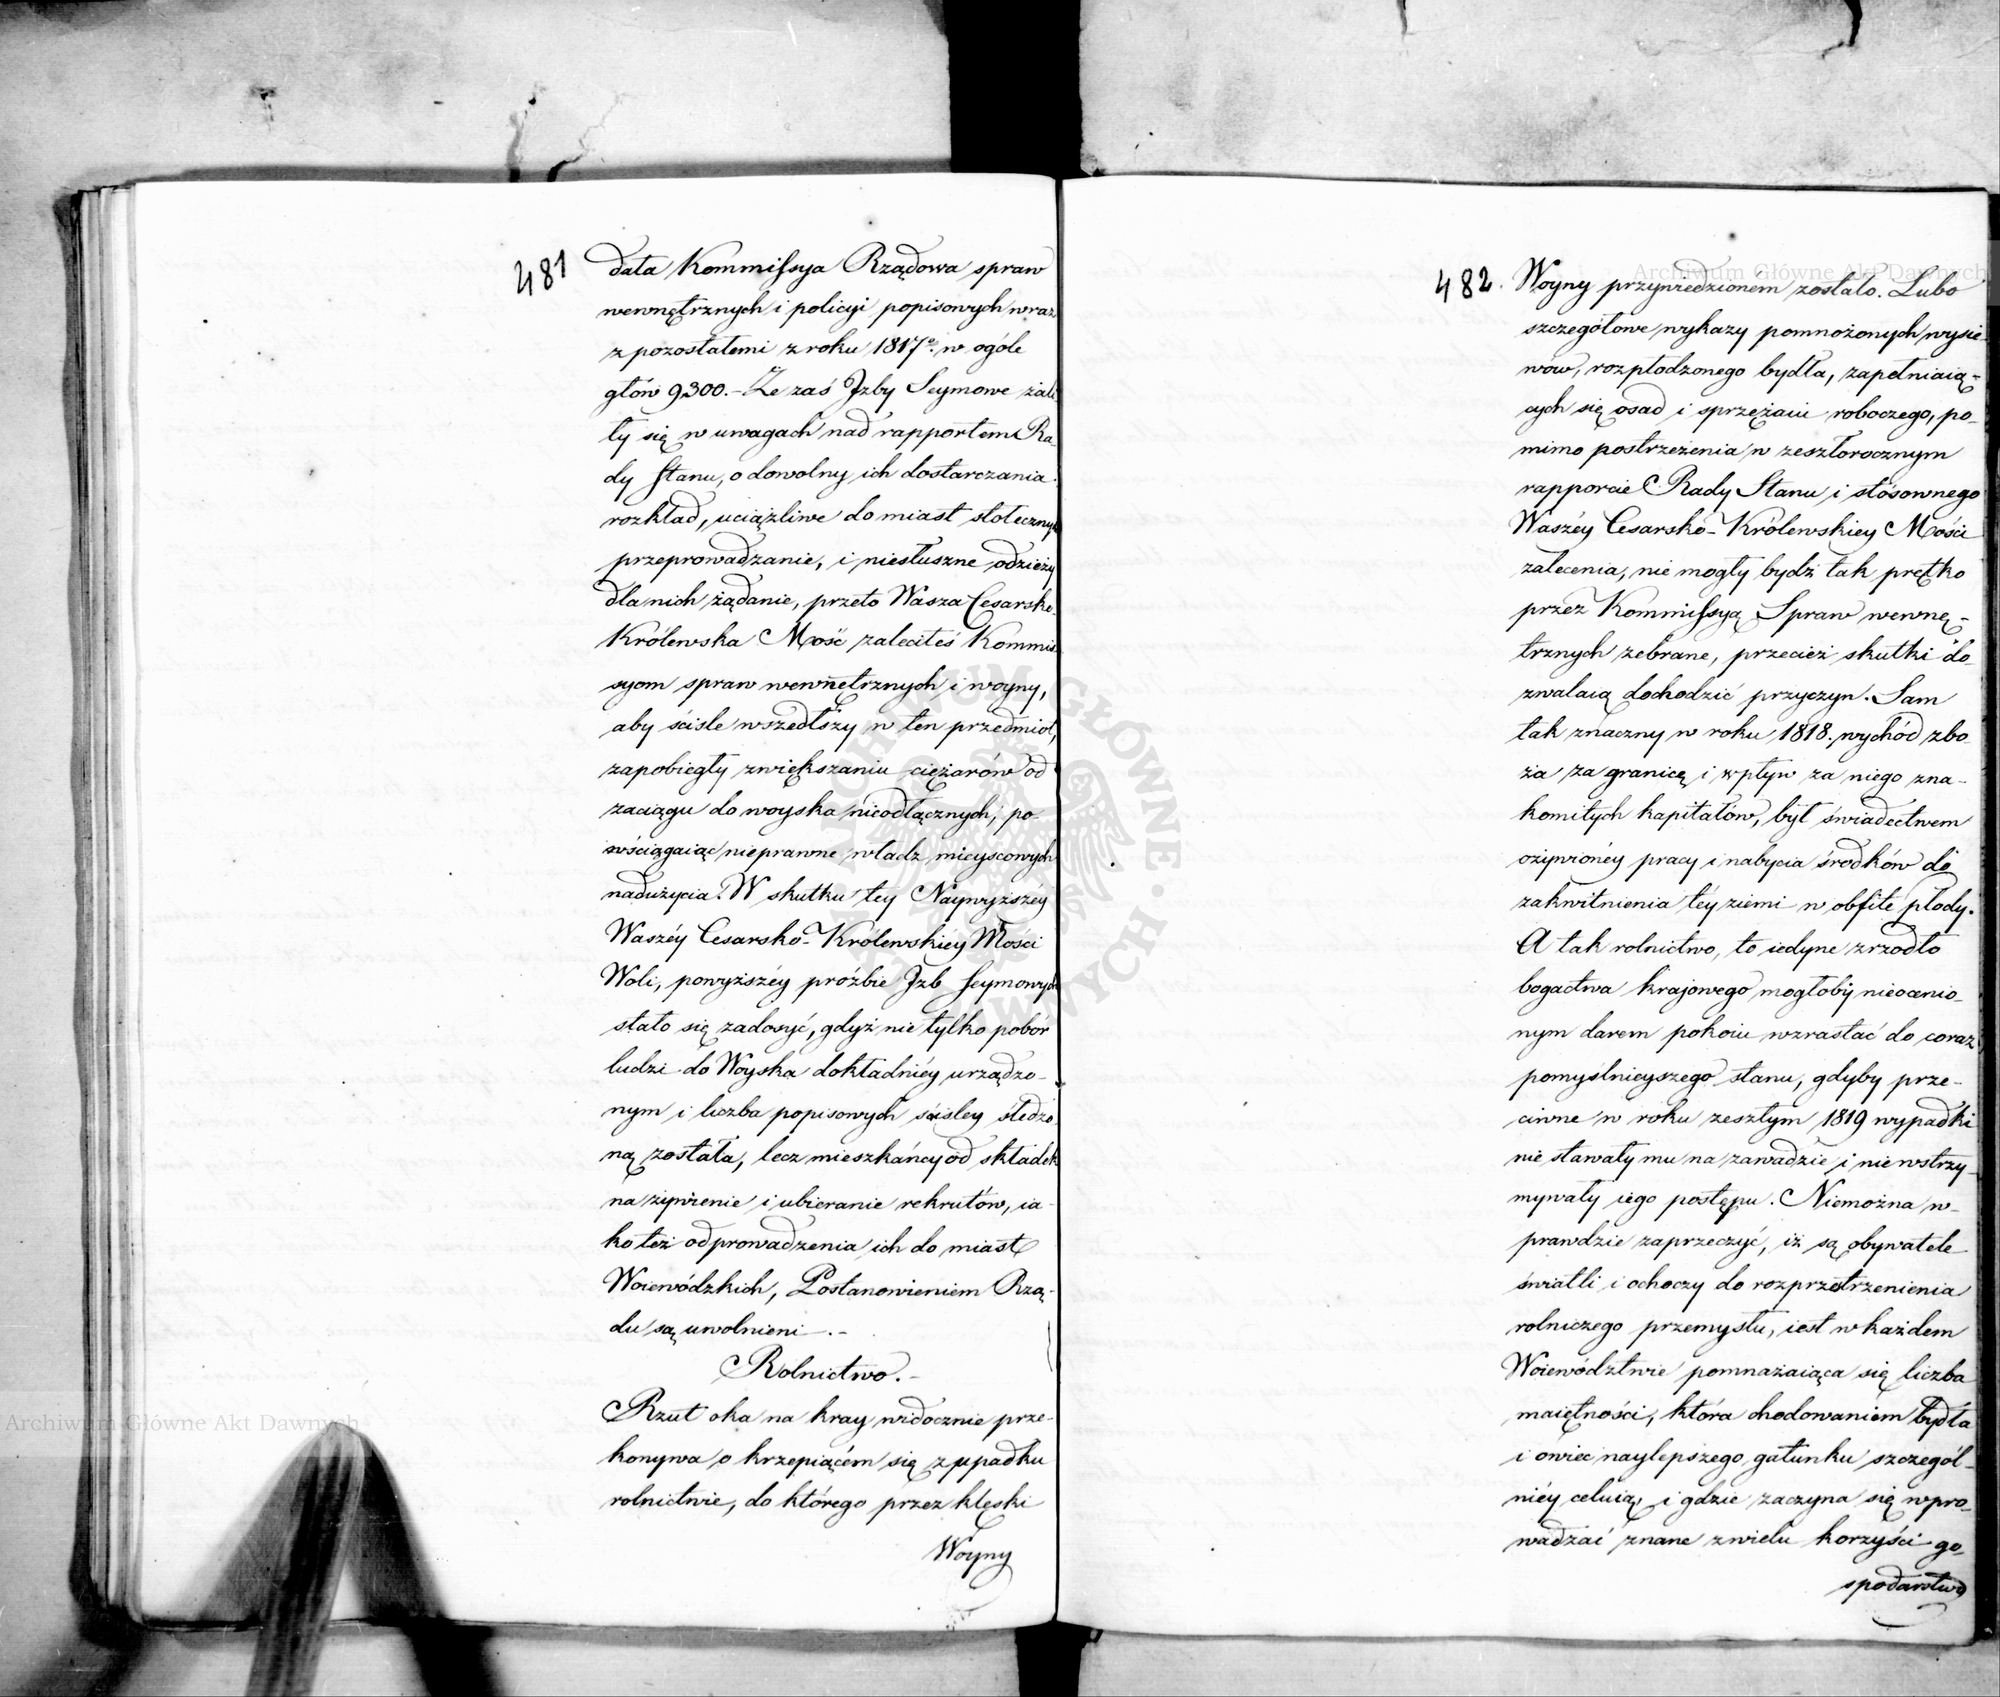 481
data Kommissya Rządowa spraw
wewnętrznych i policyi popisowych wraz
z pozostałemi z roku 1817º. w ogóle
głów 9300.- Że zaś Jzby Seymowe żali-
ły się w uwagach nad rapportem Ra-
dy Stanu, o dowolny ich dostarczania
rozkład, uciążliwe do miast stołecznych
przeprowadzanie, i niesłuszne odzieży
dla nich żądanie, przeto Wasza Cesarsko-
Królewska Mość zaleciłeś Kommis-
syom spraw wewnętrznych i woyny,
aby ściśle wszedłszy w ten przedmiot,
zapobiegły zwiększaniu ciężarów od
zaciągu do woyska nieodłącznych, po-
wściągaiąc nieprawne władz mieyscowych
nadużycia. W skutku tey Naywyższéy
Waszéy Cesarsko-Królewskiéy Mości
Woli, powyższéy próźbie Jzb Seymowych
stało się zadosyć, gdyż nie tylko pobór
ludzi do Woyska dokładniéy urządzo-
nym i liczba popisowych ścisley śledzo
ną została, lecz mieszkańcy od składek
na żywienie i ubieranie rekrutów, ia-
ko też odprowadzenia ich do miast
Woiewódzkich, Postanowieniem Rzą-
du są uwolnieni.-
Rolnictwo.-
Rzut oka na kray widocznie prze-
konywa o krzepiącém się z upadku
rolnictwie, do którego przez klęski
Woyny
482.
Woyny przywiedzionem zostało. Lubo
szczegółowe wykazy pomnożonych wysie-
wów, rozpłodzonego bydła, zapełniaią-
cych się osad i sprzężaiu roboczego, po-
mimo postrzeżenia w zeszłorocznym
rapporcie Rady Stanu i stósownego
Waszéy Cesarsko-Królewskiey Mości
zalecenia, nie mogły bydź tak prętko
przez Kommissyą Spraw wewnę-
trznych zebrane, przecież skutki do-
zwalaią dochodzić przyczyn. Sam
tak znaczny w roku 1818. wychód zbo-
ża za granicę i wpływ za niego zna-
komitych kapitałów, był świadectwem
ożywionéy pracy i nabycia środków do
zakwitnienia téy ziemi w obfite płody.
A tak rolnictwo, to iedyne zrzodło
bogactwa krajowego mogłoby nieocenio-
nym darem pokoiu wzrastać do coraz
pomyślnieyszego stanu, gdyby prze-
ciwne w roku zeszłym 1819 wypadki
nie stawały mu na zawadzie i nie wstrzy-
mywały iego postępu. Niemożna w-
prawdzie zaprzeczyć, iż są obywatele
światli i ochoczy do rozprzestrzenienia
rolniczego przemysłu, iest w każdem
Woiewództwie pomnażaiąca się liczba
maiętności, która chodowaniem bydła
i owiec naylepszego gatunku szczegól-
niéy celuią, i gdzie zaczyna się wpro-
wadzać znane z wielu korzyści go-
spodarstwo
Archiwum Główne Akt Dawnych
Archiwum Główne Akt Dawnych